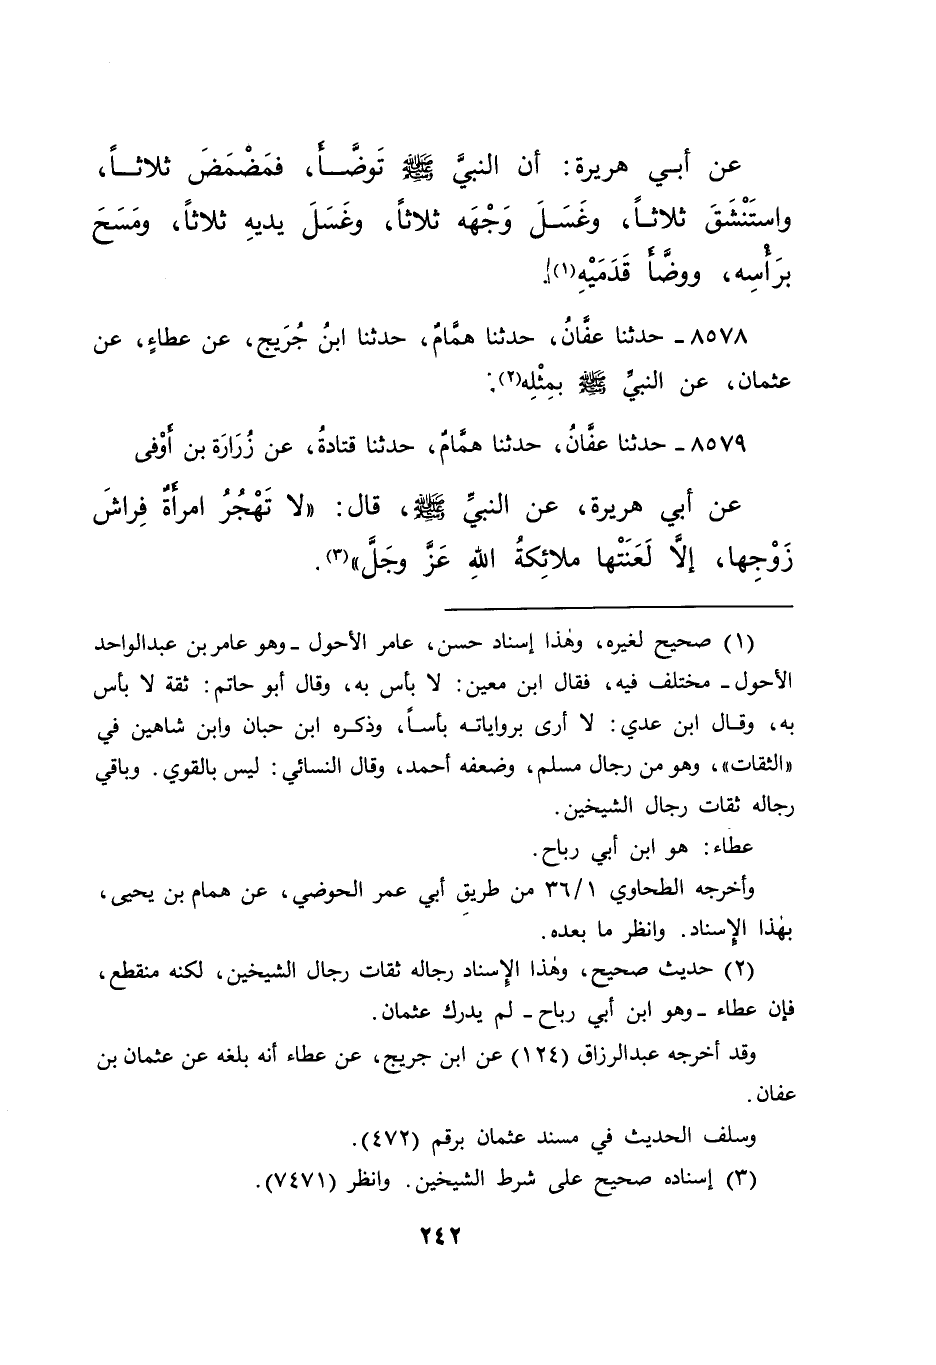 عن أبـي هريرة: أن النبيَّ ﷺ تَوضَّـــأَ، فمَضْمَضَ ثلاثــاً،
واستَنْشَقَ ثلاثــاً، وغَسَــلَ وَجْهَه ثلاثاً، وغَسَلَ يديهِ ثلاثاً، ومَسَحَ
برَأْسِه، ووضَّأَ قَدَمَيْهِ(١).
٨٥٧٨ـ حدثنا عفَّانُ، حدثنا همَّامٌ، حدثنا ابنُ جُرَيج، عن عطاءٍ، عن
عثمان، عن النبيِّ ﷺ بمِثْلِه(٢).
٨٥٧٩ـ حدثنا عفَّانُ، حدثنا همَّامٌ، حدثنا قتادةُ، عن زُرَارَة بن أَوْفى
عن أبي هريرة، عن النبيِّ ﷺ، قال: «لا تَهْجُرُ امرأَةٌ فِراشَ
زَوْجِها، إلَّا لَعَنَتْها ملائِكةُ اللهِ عَزَّ وجَلَّ»(٣).
(١) صحيح لغيره، وهٰذا إسناد حسن، عامر الأحول ـ وهو عامر بن عبدالواحد
الأحول ـ مختلف فيه، فقال ابن معين: لا بأس به، وقال أبو حاتم: ثقة لا بأس
به، وقـال ابن عدي: لا أرى برواياتـه بأسـاً، وذكـره ابن حبان وابن شاهين في
«الثقات»، وهو من رجال مسلم، وضعفه أحمد، وقال النسائي: ليس بالقوي. وباقي
رجاله ثقات رجال الشيخين.
عطاء: هو ابن أبي رباح.
وأخرجه الطحاوي ٣٦/١ من طريق أبي عمر الحوضي، عن همام بن يحيى،
بهٰذا الإسناد. وانظر ما بعده.
(٢) حديث صحيح، وهٰذا الإسناد رجاله ثقات رجال الشيخين، لكنه منقطع،
فإن عطاء ـ وهو ابن أبي رباح ـ لم يدرك عثمان.
وقد أخرجه عبدالرزاق (١٢٤) عن ابن جريج، عن عطاء أنه بلغه عن عثمان بن
عفان.
وسلف الحديث في مسند عثمان برقم (٤٧٢).
(٣) إسناده صحيح على شرط الشيخين. وانظر (٧٤٧١).
٢٤٢